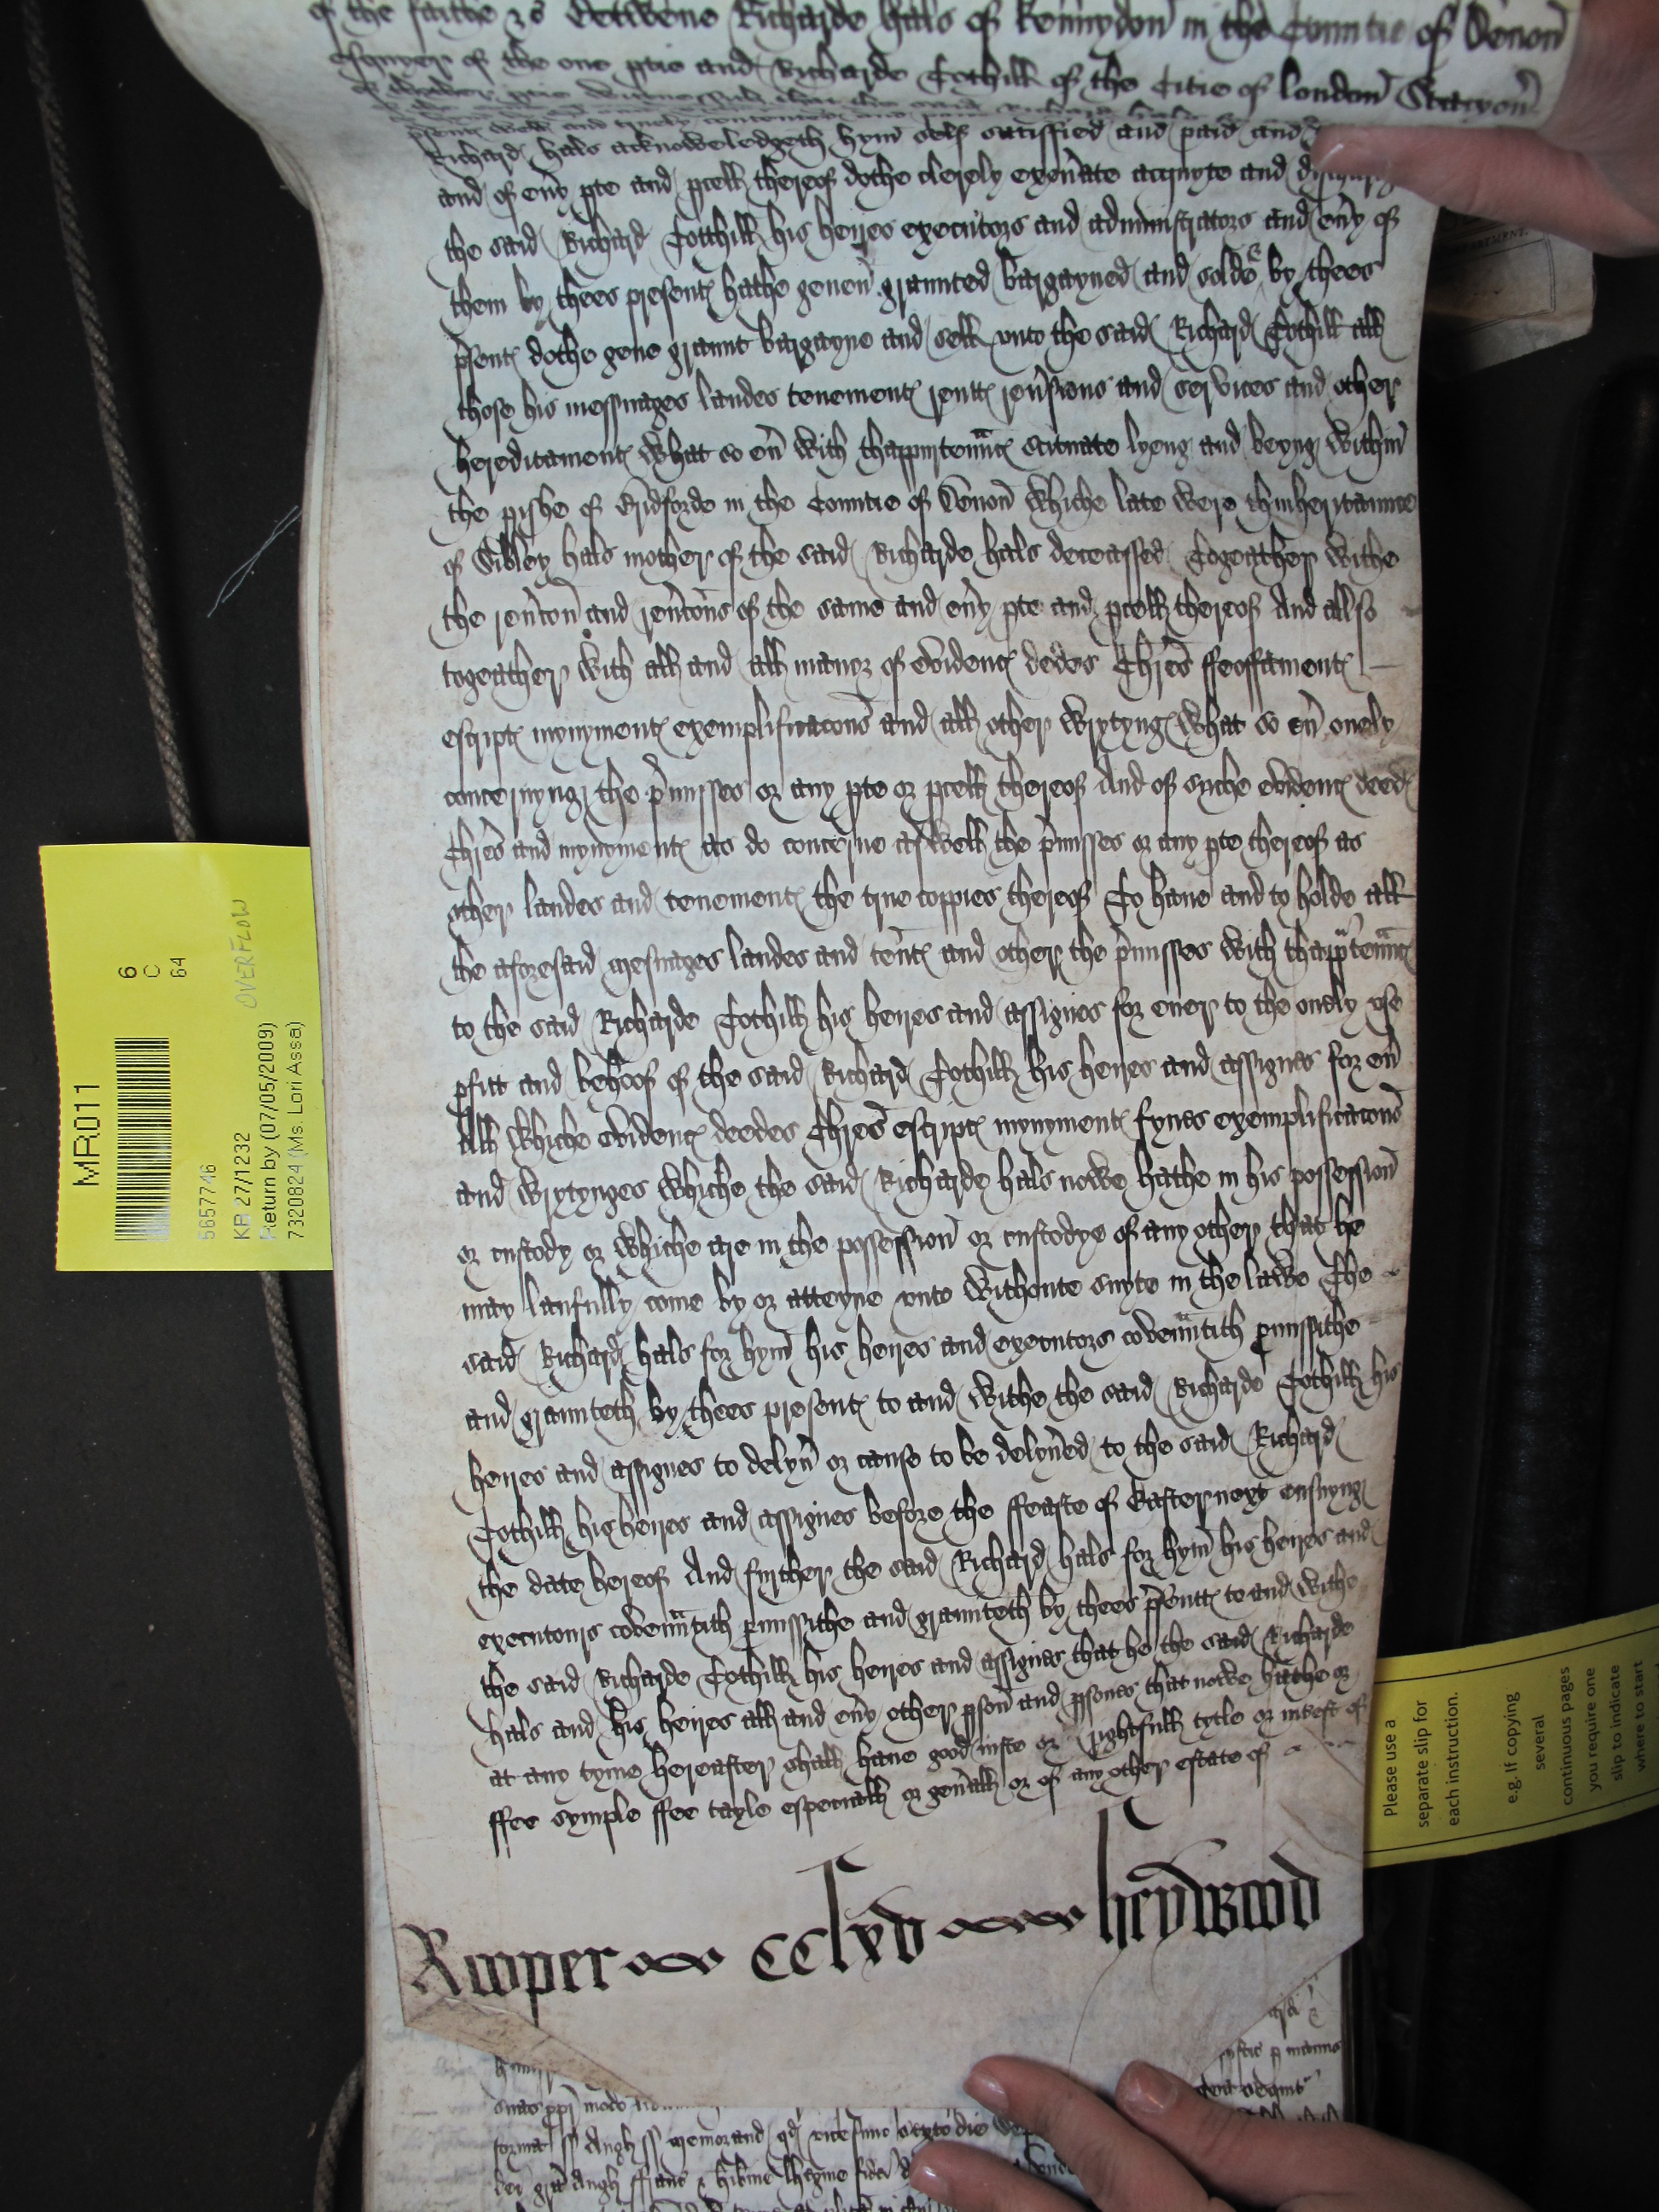 of the faithe &c Betwene Richarde hals of kennydon in the Countie of Devon
esquyer of the one ptie and Richarde Cothill of the Citie of london
Richard hals acknowledgeth hym self satisfied and paid and
and of evy pte and pcell thereof dothe clerely exon'ate acquyte and
the said Richard Cotthill his heires executors and administrators and evy of
them by thees present hathe geven graunted bargayned and solde & by thees
psent dothe geve graunt bargayne and sell unto the said Richard Cothill all
those his messuages landes tenement rentt rev'sions and services and other
hereditament what so ev' with thappurten'nc scituate lyeng and beyng within
the pishe of Bridforde in the Countie of Devon whiche late were thinheritaunce
of Sibley hals mother of the said Richarde hals deceassed Togeather withe
the rev'con and rev'cons of the same and evy pte and pcell thereof And also
togeather with all and all manor of evident dedes Chres ffeoffament
escript mynyment exemplificacons and all other wrytyng what so ev' onely
concernyng the p'misses or any pte or pcell thereof And of suche evident deed
Chres and mynyment as do concerne aswell the p'misses or any pte thereof as
other landes and tenement the true coppies thereof To have and to holde all
the aforesaid mesuages landes and ten't and other the p'misses with thapp'ten'nc
to the said Richarde Cothill his heires and assignes for ever to the onely use
pfitt and behoof of the said Richard Cothill his heires and assignes for ev'
All whiche evident deedes Chres escript mynyment fynes exemplificacons
and wrytynges whiche the said Richarde hals nowe hathe in his possession
or custody or whiche are in the possession or custodye of any other that he
may laufully come by or atteyne unto withoute suyte in the lawe The
said Richard hals for hym his heires and executors coven'ntith pmissithe
and graunteth by thees present to and withe the said Richarde Cothill his
heires and assignes to delyv' or cause to be delyv'ed to the said Richard
Cothill his heires and assignes before the ffeaste of Easter next ensuyng
the date hereof And further the said Richard hals for hym his heires and
executours coven'ntith pmissithe and graunteth by thees p'sentt to and withe
the said Richarde Cothill his heires and assignes that he the said Richarde
hals and his heires all and evy other pson and psones that nowe hathe or
at any tyme hereafter shall have good iuste or rightfull tytle or int'est of
ffee symple ffee tayle especiall or gen'all or of any other estate of
Rooper cclxv heywood
MR011
6
C
64
5657746
KB 27/1232
OVERFLOW
Return by (07/05/2009)
7320824 (Ms. Lori Assa)
Please use a
separate slip for
each instruction.
e.g. If copying
several
continuous pages
you require one
slip to indicate
where to start